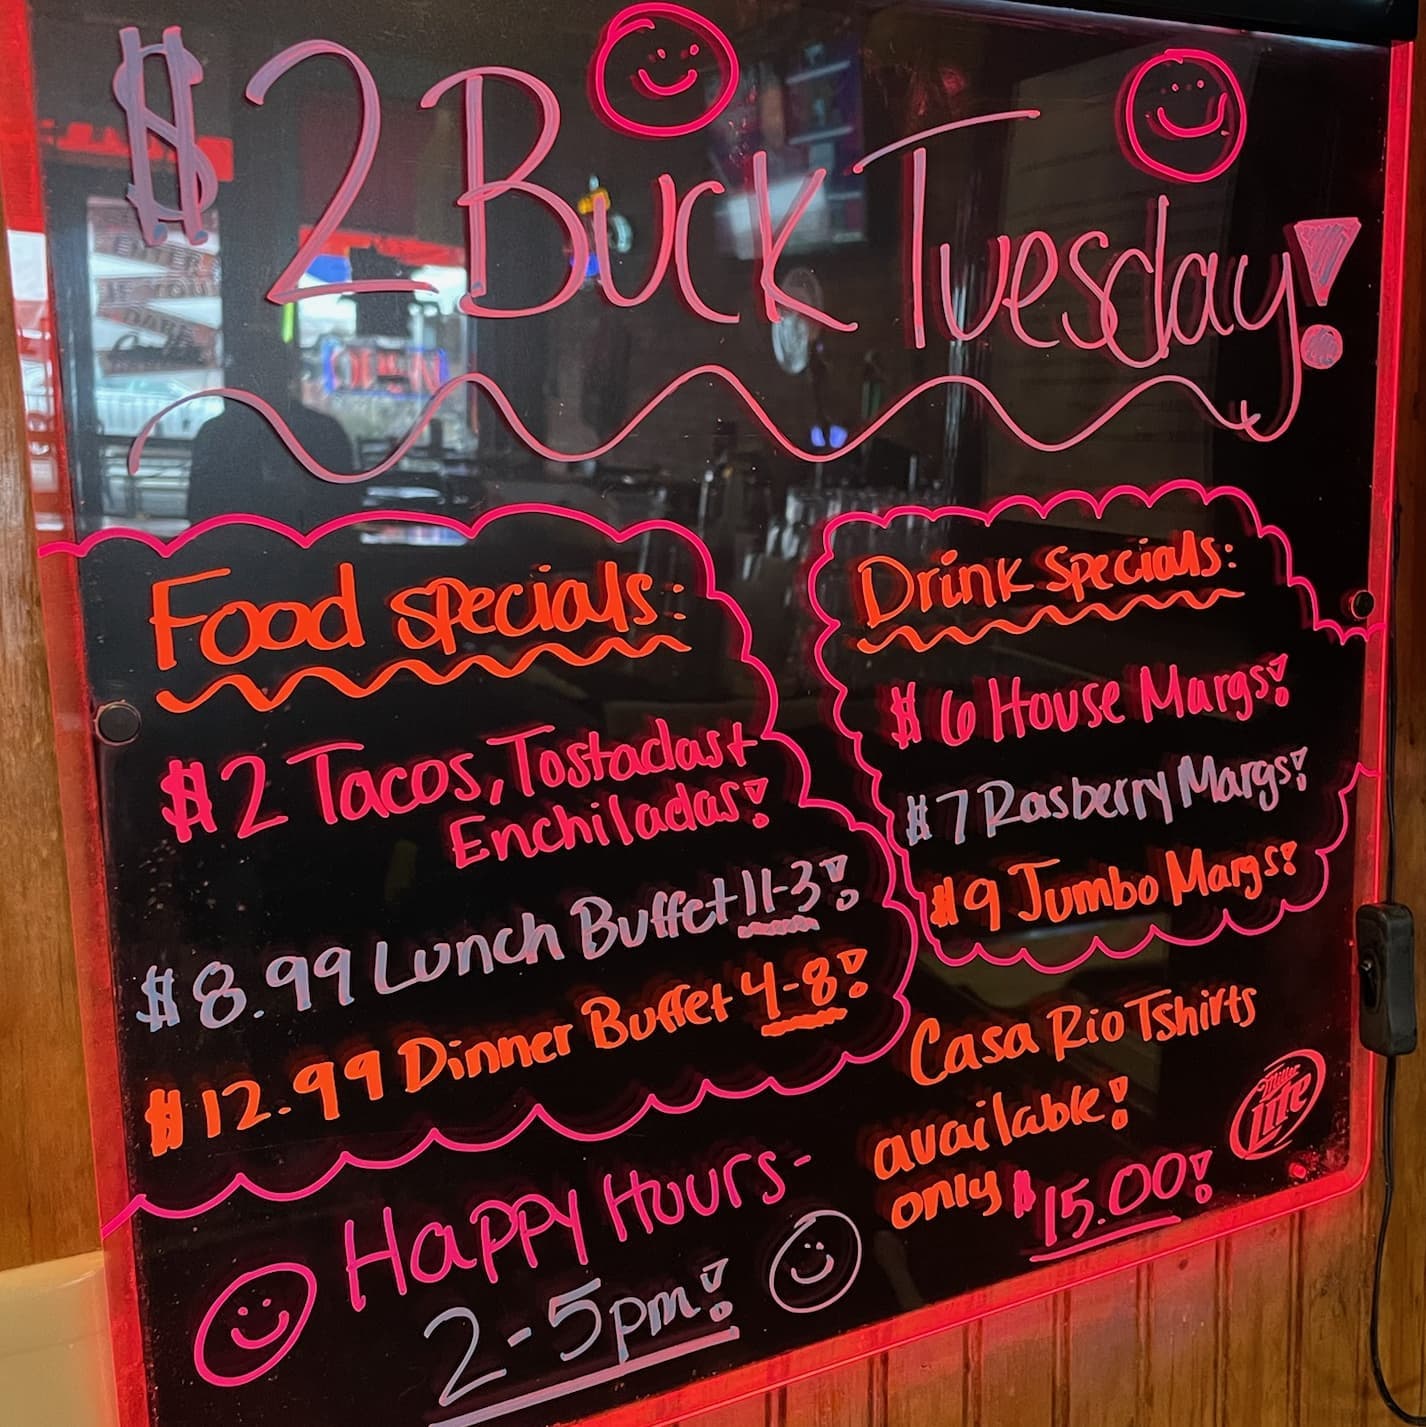 $2 Buck Tuesday!
Food Specials:
$2 Tacos, Tostadas +
Enchiladas!
$8.99 Lunch Buffet 11-3!
$12.99 Dinner Buffet 4-8!
Drink Specials:
$6 House Margs!
$7 Rasberry Margs!
$9 Jumbo Margs!
Casa Rio Tshirts
available!
only $15.00!
Happy Hours-
2-5pm!
Miller
Lite
OPEN